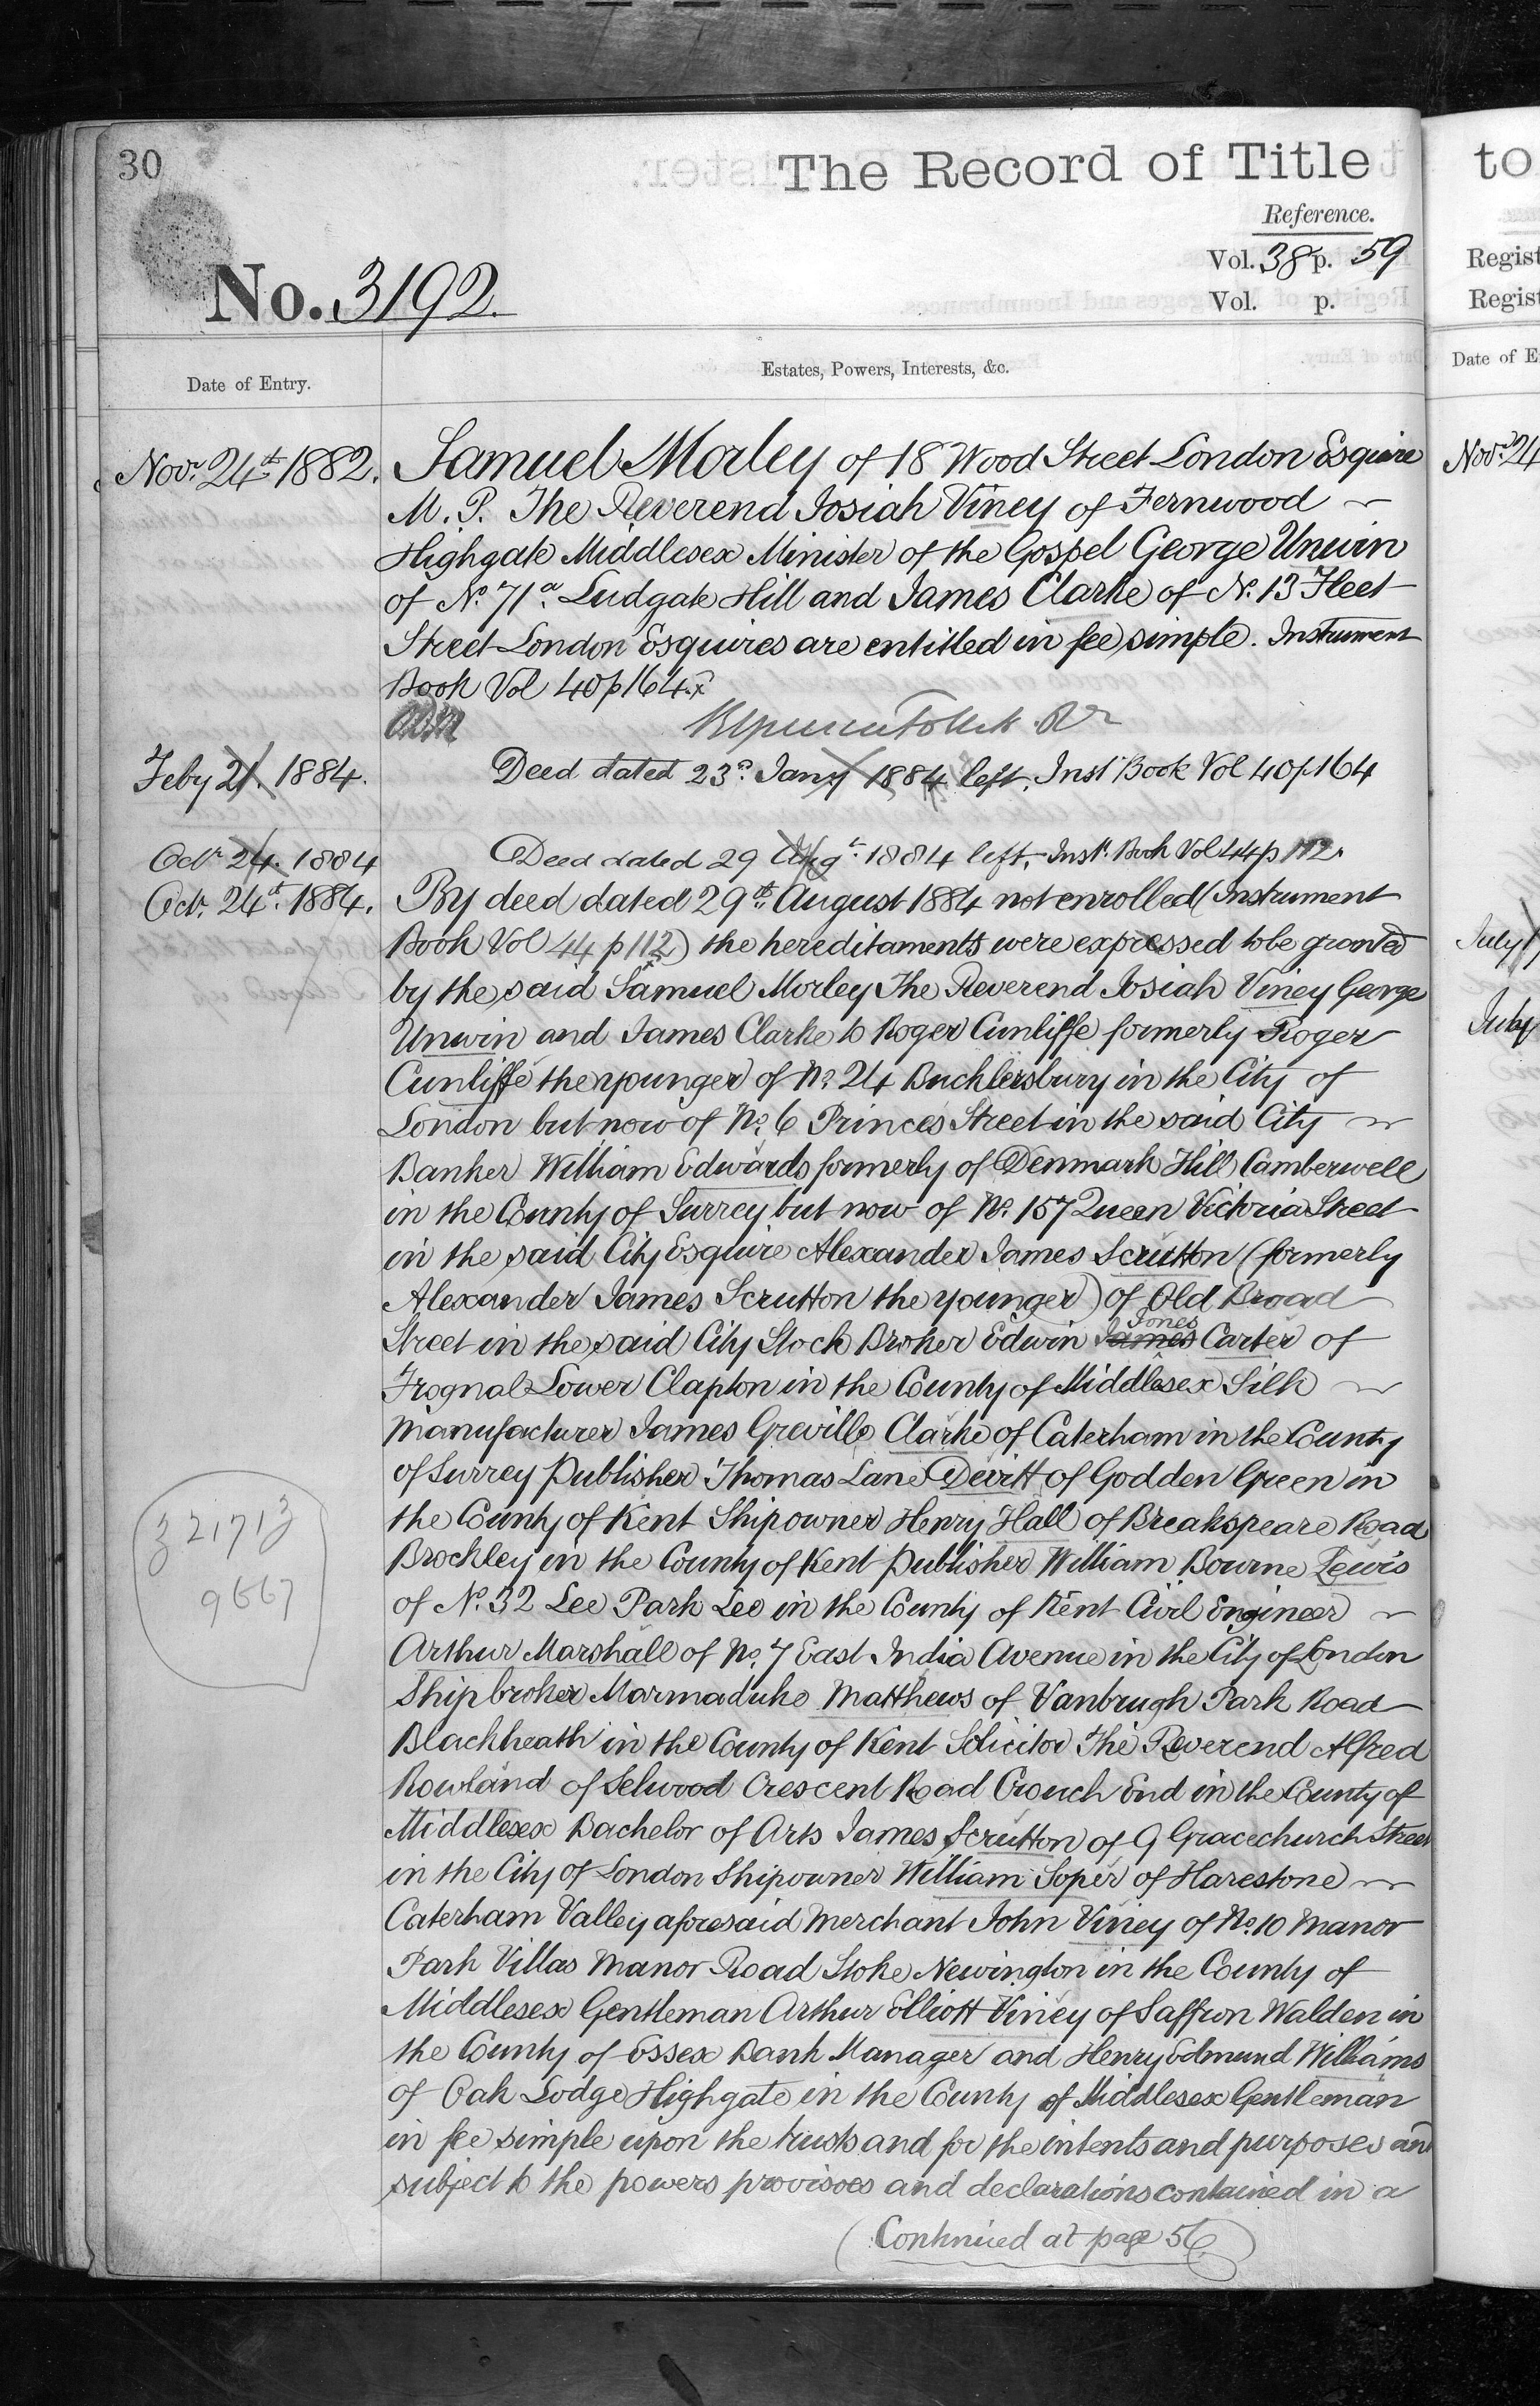 30
The Record of Title
Reference.
Vol. 38 p. 59
Vol. p.
No. 3192.
Date of Entry.
Estates, Powers, Interests, &c.
Novr. 24th 1882. Samuel Morley of 18 Wood Street London Esquire
M. P. The Reverend Josiah Viney of Fernwood
Highgate Middlesex Minister of the Gospel George Unwin
of No. 71a. Ludgate Hill and James Clarke of No. 13 Fleet
Street London Esquires are entitled in fee simple. Instrument
Book Vol 40 p 164.
Feby 21. 1884. Deed dated 23d. Jany 1884 left. Inst Book Vol 40 p. 164
Octr 24. 1884 Deed dated 29 Augt. 1884 left. Inst. Book Vol 44 p 112.
Oct. 24th. 1884. By deed dated 29th. August 1884 not enrolled (Instrument
Book Vol 44 p 112) the hereditaments were expressed to be granted
by the said Samuel Morley The Reverend Josiah Viney George
Unwin and James Clarke to Roger Cunliffe formerly Roger
Cunliffe the younger of No. 24 Bucklersbury in the City of
London but now of No. 6 Princes Street in the said City
Banker William Edwards formerly of Denmark Hill Camberwell
in the County of Surrey but now of No. 157 Queen Victoria Street
in the said City Esquire Alexander James Scrutton (formerly
Alexander James Scrutton the younger) of Old Broad
Jones
Street in the said City Stock Broker Edwin James Carter of
Frognal Lower Clapton in the County of Middlesex Silk
Manufacturer James Greville Clarke of Caterham in the County
of Surrey Publisher Thomas Lane Devitt of Godden Green in
the County of Kent Shipowner Henry Hall of Breakspeare Road
Brockley in the County of Kent Publisher William Bourne Lewis
of No. 32 Lee Park Lee in the County of Kent Civil Engineer
Arthur Marshall of No. 7 East India Avenue in the City of London
Shipbroker Marmaduke Matthews of Vanbrugh Park Road
Blackheath in the County of Kent Solicitor The Reverend Alfred
Rowland of Selwood Crescent Road Crouch End in the County of
Middlesex Bachelor of Arts James Scrutton of 9 Gracechurch Street
in the City of London Shipowner William Soper of Harestone
Caterham Valley aforesaid Merchant John Viney of No. 10 Manor
Park Villas Manor Road Stoke Newington in the County of
Middlesex Gentleman Arthur Elliott Viney of Saffron Walden in
the County of Essex Bank Manager and Henry Edmund Williams
of Oak Lodge Highgate in the County of Middlesex Gentleman
in fee simple upon the trusts and for the intents and purposes and
subject to the powers provisoes and declarations contained in a
(Continued at page 56)
321713
9667
to
Regist
Regist
Date of E
Novr. 24
July
July